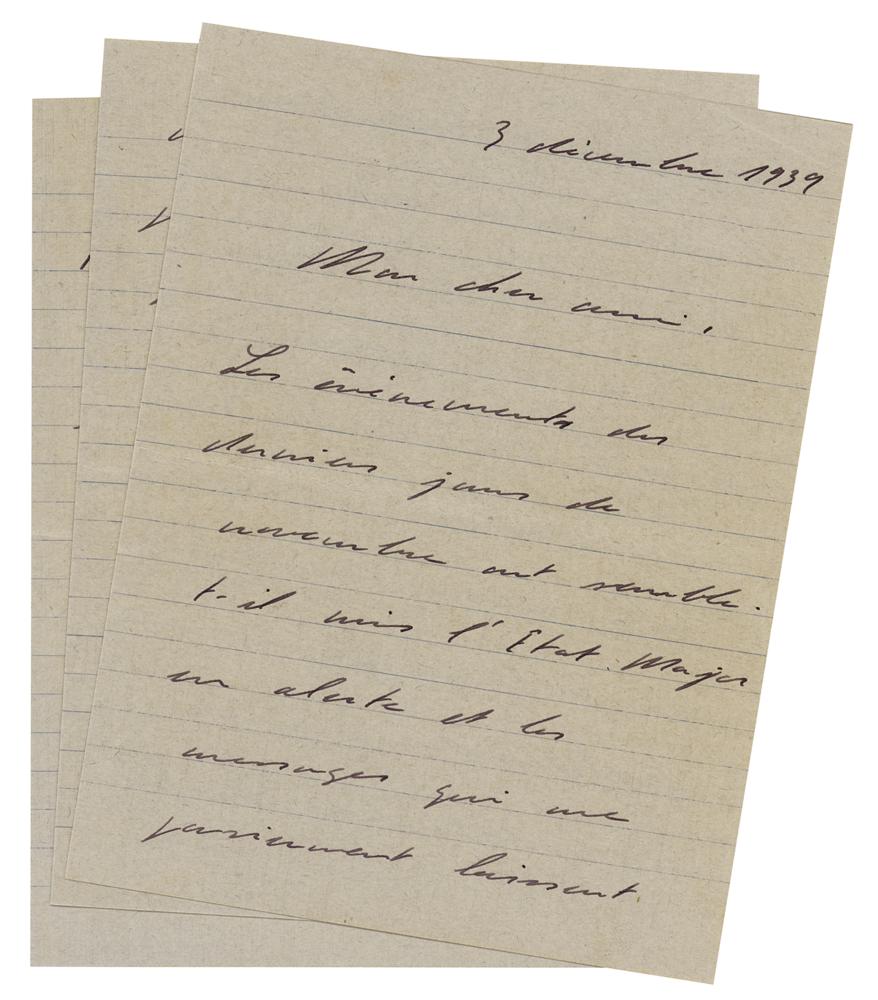 3 décembre 1939
Mon cher ami,
Les évènements des
derniers jours de
novembre ont semble-
t-il mis l'Etat-Major
en alerte et les
messages qui me
parviennent laissent